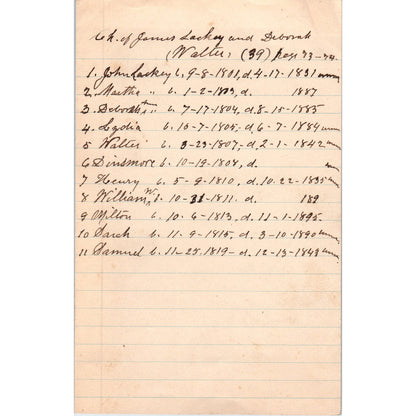 Ch. of James Lackey and Deborah
(Walter, (39) page 73-74.
1. John Lackey b. 9-8-1801, d. 4-17-1831
2. Martha " b. 1-2-1803, d. 1887
3 Deborah " b. 7-17-1804, d. 8-15-1885
4. Lydia b. 10-7-1805, d. 6-7-1884
5 Walter b. 3-23-1807, d. 2-1-1842
6 Dinsmore b. 10-19-1808, d.
7 Henry b. 5-9-1810, d. 10-22-1835
8 William W. b. 10-31-1811. d. 189
9 Milton b. 10-6-1813, d. 11-1-1895
10 Sarah b. 11-9-1815, d. 3-10-1890
11 Samuel b. 11-25-1819- d. 12-13-1843